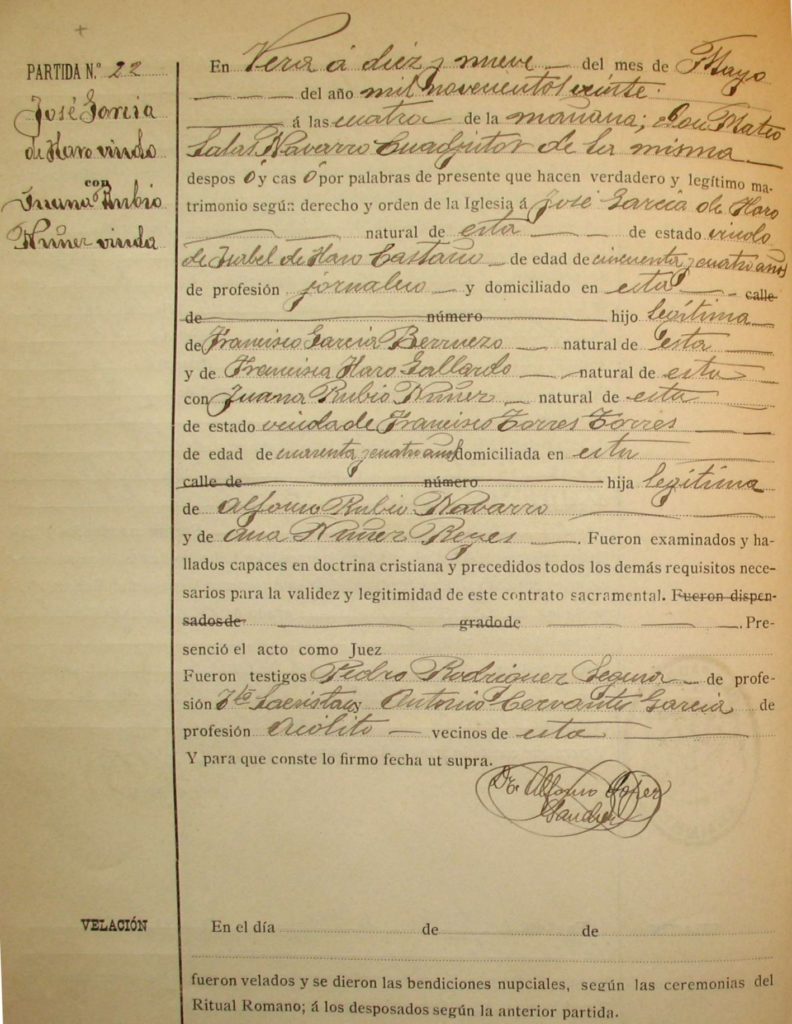 PARTIDA N.º 22
José Garcia
de Haro viudo
con
Juana Rubio
Nuñez viuda
En Vera á diez y nueve del mes de Mayo
del año mil novecientos veinte
á las cuatro de la mañana; Don Mateo
Salas Navarro Cuadjutor de la misma
desposó y casó por palabras de presente que hacen verdadero y legítimo ma-
trimonio según derecho y orden de la Iglesia á José García de Haro
natural de esta de estado viudo
de Isabel de Haro Castaño de edad de cincuenta y cuatro años
de profesión jornalero y domiciliado en esta calle
de número hijo legítimo
de Francisco García Berruezo natural de esta
y de Francisca Haro Gallardo natural de esta
con Juana Rubio Nuñez natural de esta
de estado viuda de Francisco Torres Torres
de edad de cuarenta y cuatro años domiciliada en esta
calle de número hija legítima
de Alfonso Rubio Navarro
y de Ana Nuñez Reyes. Fueron examinados y ha-
llados capaces en doctrina cristiana y precedidos todos los demás requisitos nece-
sarios para la validez y legitimidad de este contrato sacramental. Fueron dispen-
sados de grado de . Pre-
senció el acto como Juez
Fueron testigos Pedro Rodriguez Segura de profe-
sión Sacristan y Antonio Cervantes García de
profesión Acólito vecinos de esta
Y para que conste lo firmo fecha ut supra.
Dr. Alfonso Lopez
Sanchez
VELACIÓN
En el día de de
fueron velados y se dieron las bendiciones nupciales, según las ceremonias del
Ritual Romano; á los desposados según la anterior partida.